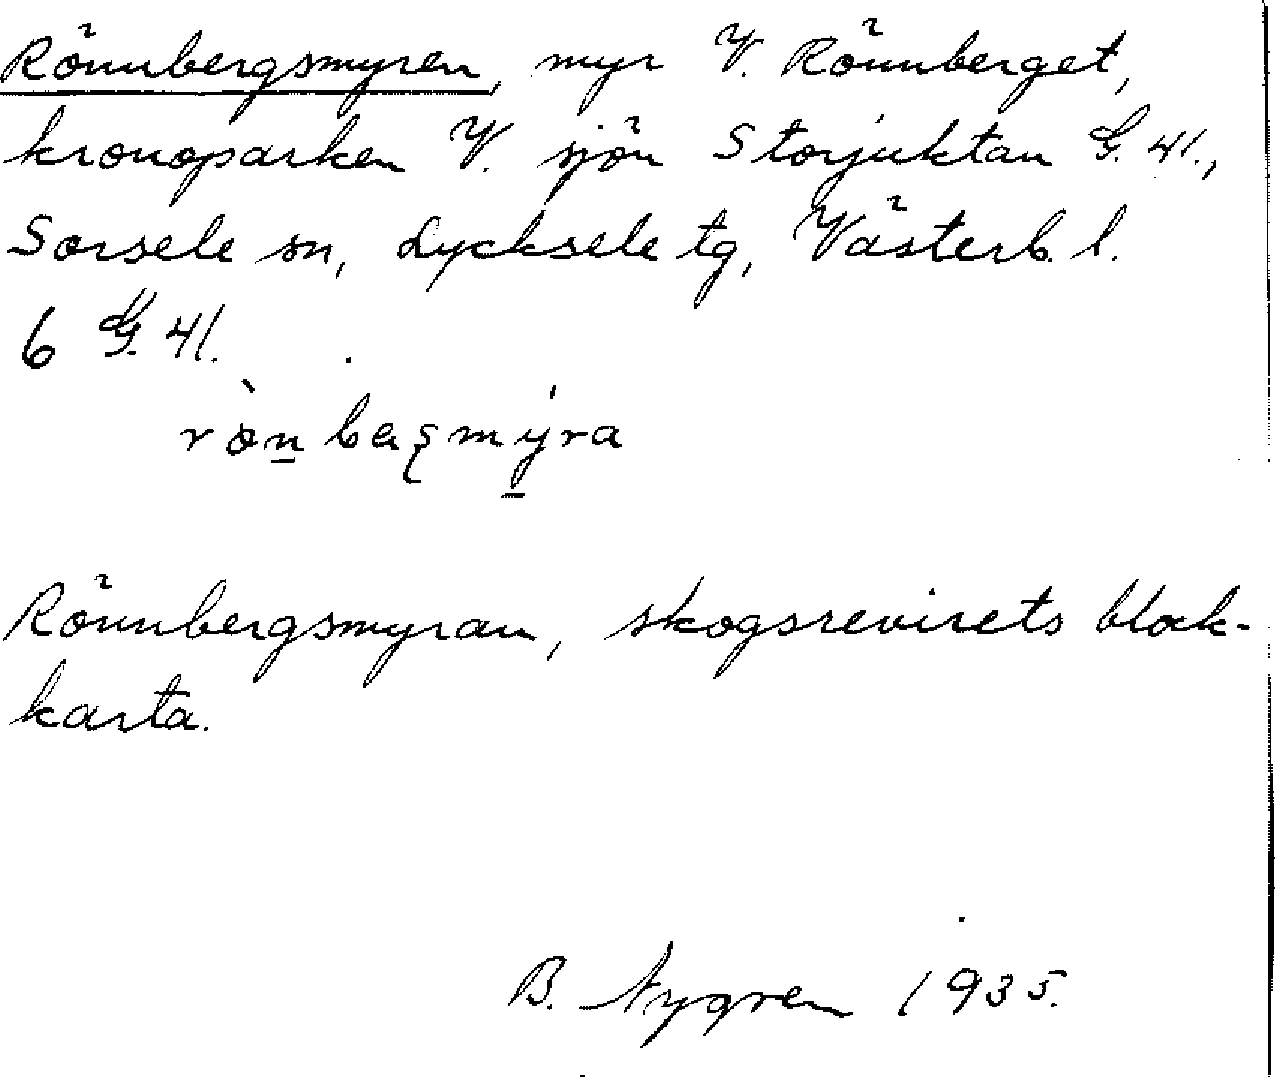 Rönnbergsmyren, myr V. Rönnberget,
kronoparken V. sjön Storjuktan G. 41.,
Sorsele sn, Lycksele tg, Västerb. l.
6 G. 41.
Rönnbergsmyran, skogsrevirets block-
karta.
B. Nygren 1935.